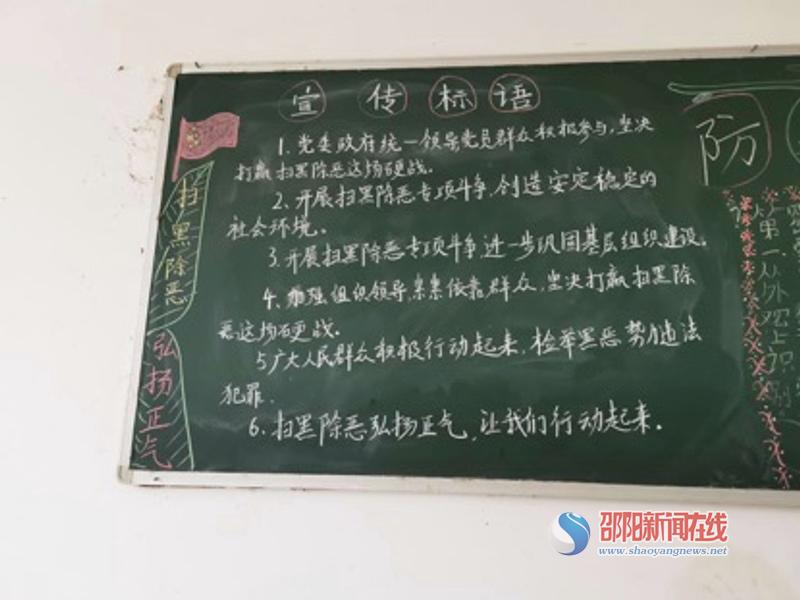 宣传标语
1.党委政府统一领导党员群众积极参与,坚决
打赢扫黑除恶这场硬战。
2.开展扫黑除恶专项斗争,创造安定稳定的
社会环境。
3.开展扫黑除恶专项斗争,进一步巩固基层组织建设。
4.加强组织领导,紧紧依靠群众,坚决打赢扫黑除
恶这场硬战。
5广大人民群众积极行动起来,检举黑恶势力违法
犯罪.
6.扫黑除恶弘扬正气,让我们行动起来.
扫黑除恶
弘扬正气
防
第一从外观上识别
邵阳新闻在线
www.shaoyangnews.net